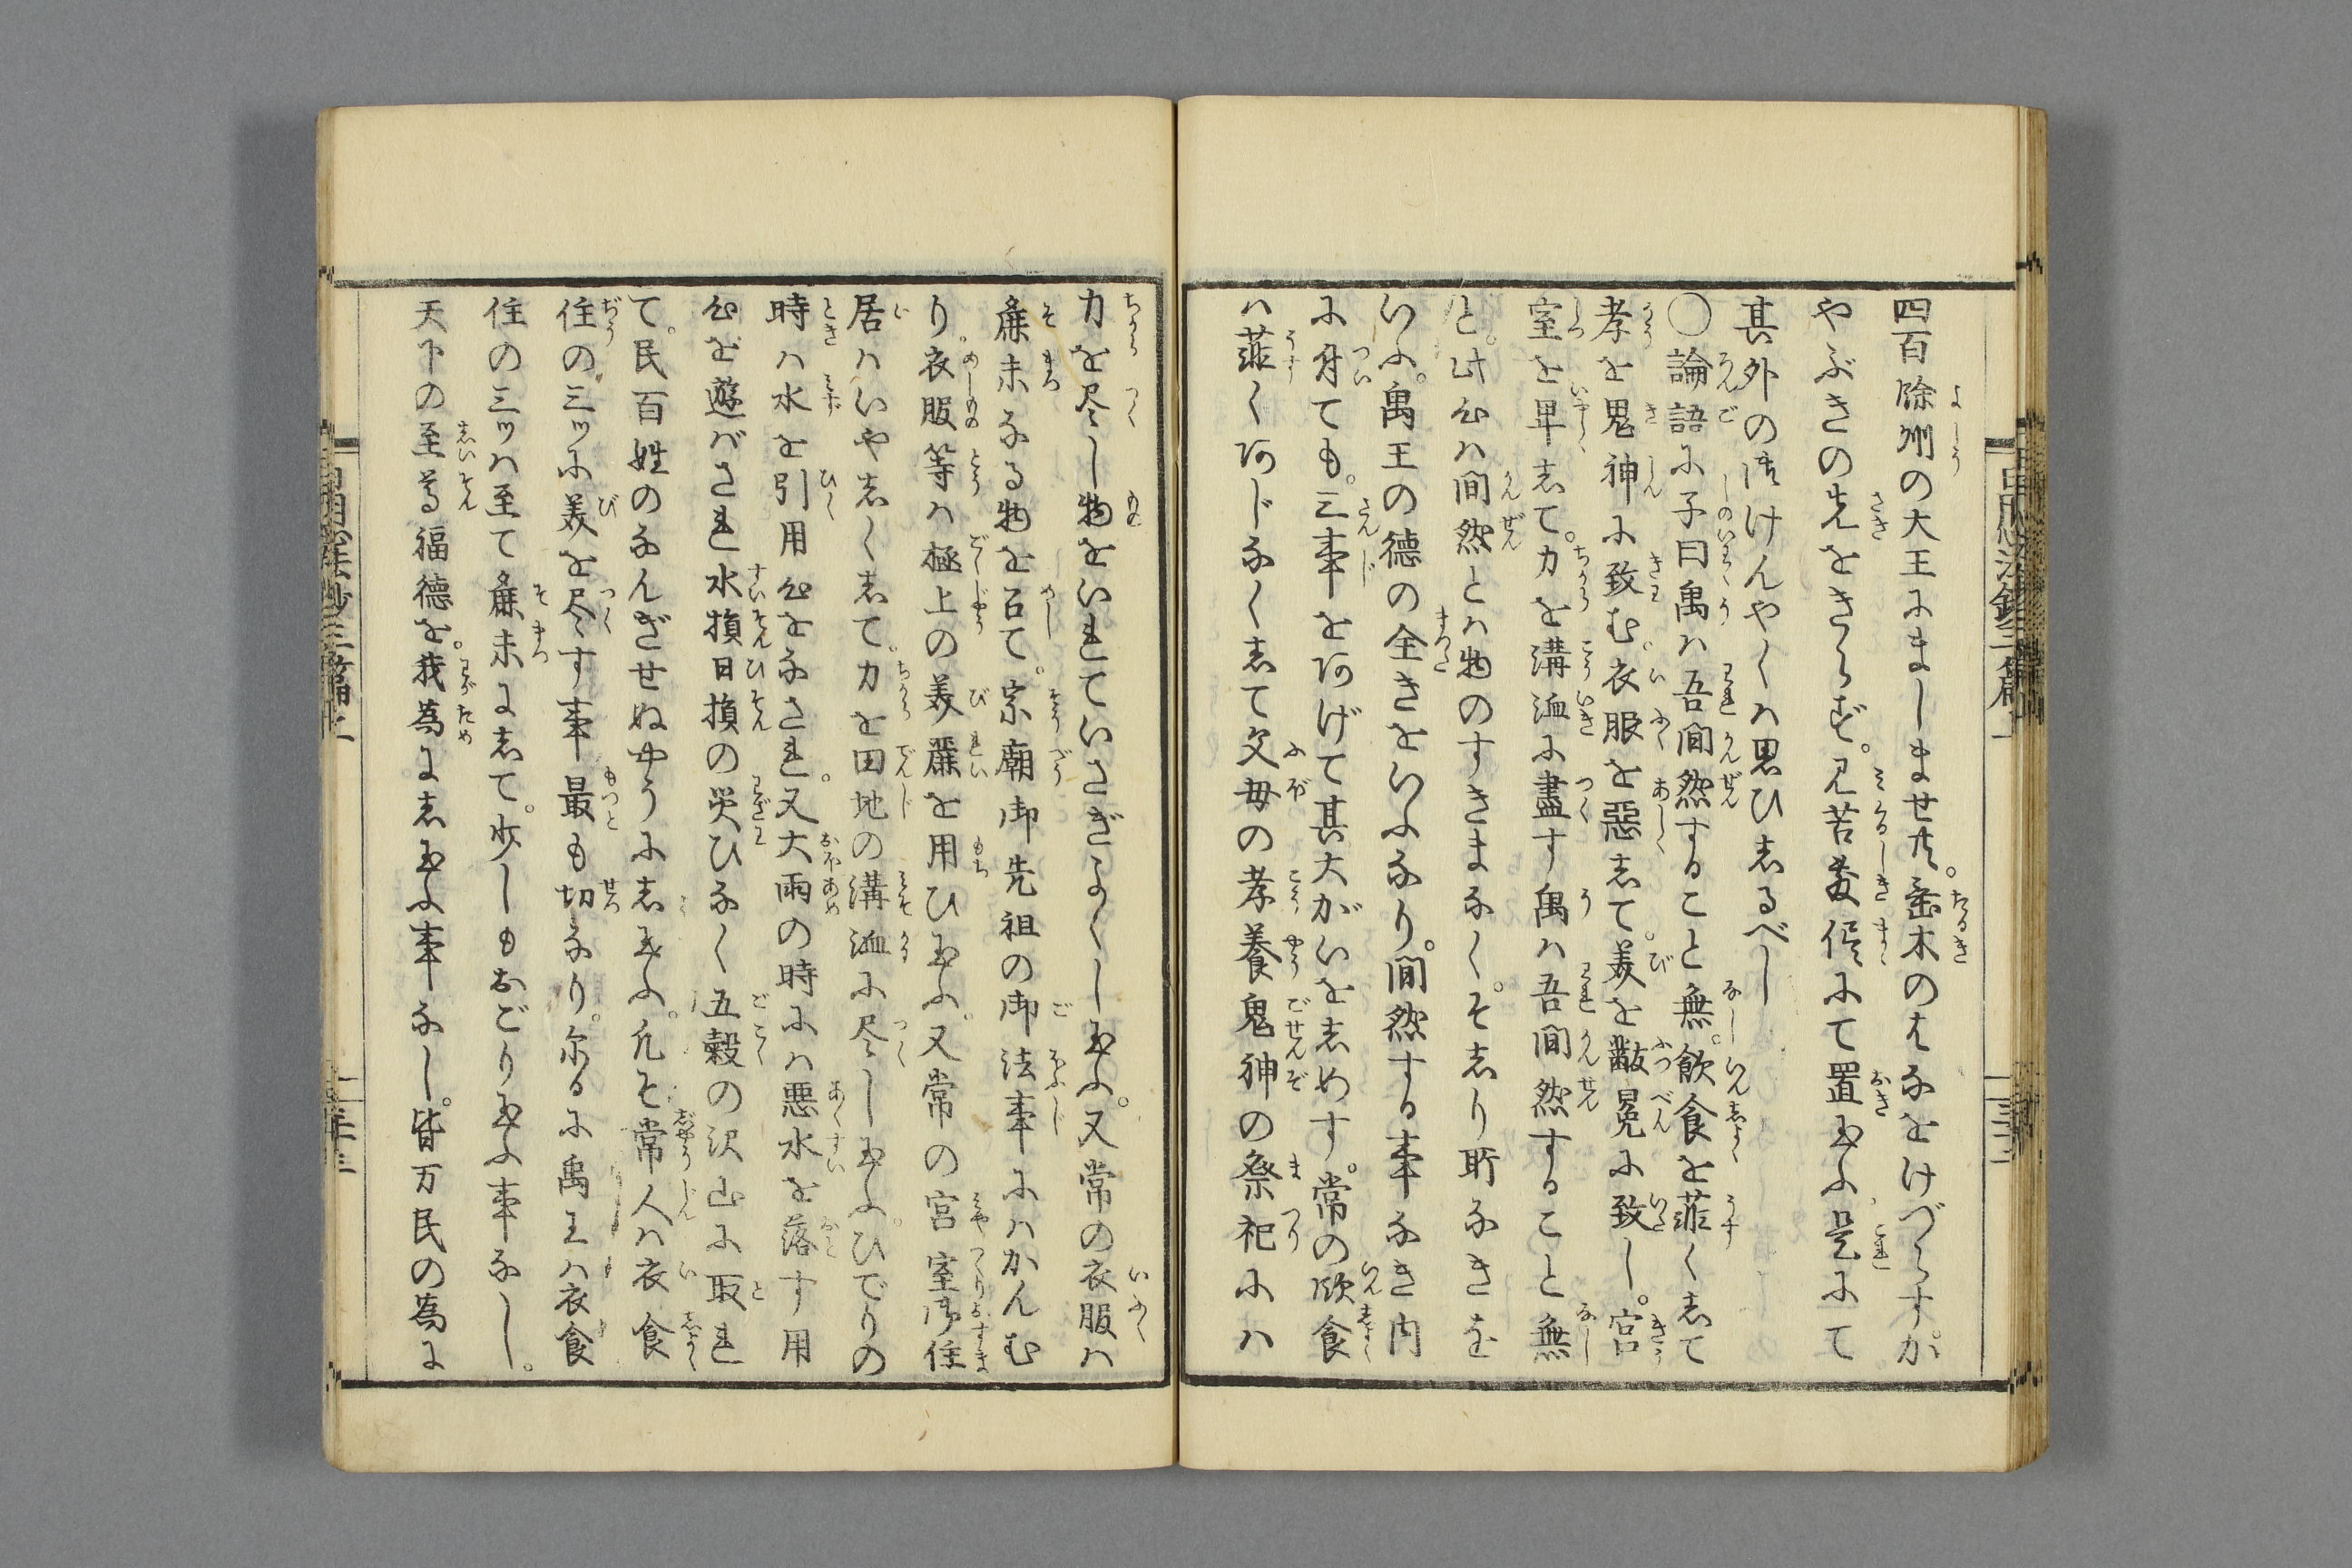 四百餘州の大王にましませ共。垂木のはなをけづらすか
やぶきの先をきらず。見苦敷侭にて置玉ふ是にて
其外の御けんやくハ思ひしるべし
〇論語に子曰禹ハ吾間然することと無。飲食を菲くして
孝を鬼神に致む。衣服を惡して。美を黻冕に致し。宮
室を卑して。力を溝洫に盡す禹ハ吾間然すること無
と。此心ハ間然とハ物のすきまなく。そしり所なきを
いふ。禹王の德の全きをいふなり。間然する事なき内
に付ても。三事をあげて其大がいをしめす。常の飲食
ハ菲くあじなくして父母の孝養鬼神の祭祀にハ
力を尽し物をいれていさぎよくし玉ふ。又常の衣服ハ
麁末なる物を召て。宗廟御先祖の御法事にハかんむ
り。衣服等ハ極上の美麗を用ひ玉ふ。又常の宮室御住
居ハいやしくして。力を田地の溝洫に尽し玉ふ。ひでりの
時ハ水を引用心をなされ。又大雨の時にハ悪水を落す用
心を遊バされ水損日損の災ひなく五穀の沢山に取れ
て。民百姓のなんぎせぬやうにし玉ふ。凡そ常人ハ衣食
住の三ッに美を尽す事最も切なり。尓るに禹王ハ衣食
住の三ッハ至て麁末にして。少しもおごり玉ふ事なし。
天下の至尊福德を。我為にし玉ふ事なし。皆万民の為に